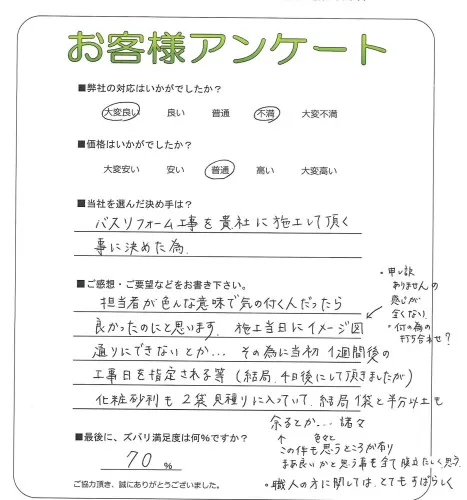 お客様アンケート
■弊社の対応はいかがでしたか？
大変良い 良い 普通 不満 大変不満
■価格はいかがでしたか？
大変安い 安い 普通 高い 大変高い
■当社を選んだ決め手は？
バスリフォーム工事を貴社に施工して頂く
事に決めた為.
■ご感想・ご要望などをお書き下さい。
担当者が色んな意味で気の付く人だったら
良かったのにと思います. 施工当日にイメージ図
通りにできないとか… その為に当初1週間後の
工事日を指定される等(結局. 4日後にして頂きましたが)
化粧砂利も2袋見積りに入っていて. 結局1袋と半分以上も
余るとか… 諸々
・申し訳
ありませんの
感じが
全くない.
・何の為の
打ち合わせ?
↑ 色々と
この件も思うところが有り
まあ良いかと思う事も全て腹立たしく思う.
・職人の方に関しては. とてもすばらしく
■最後に、ズバリ満足度は何％ですか？
70 %
ご協力頂き、誠にありがとうございました。